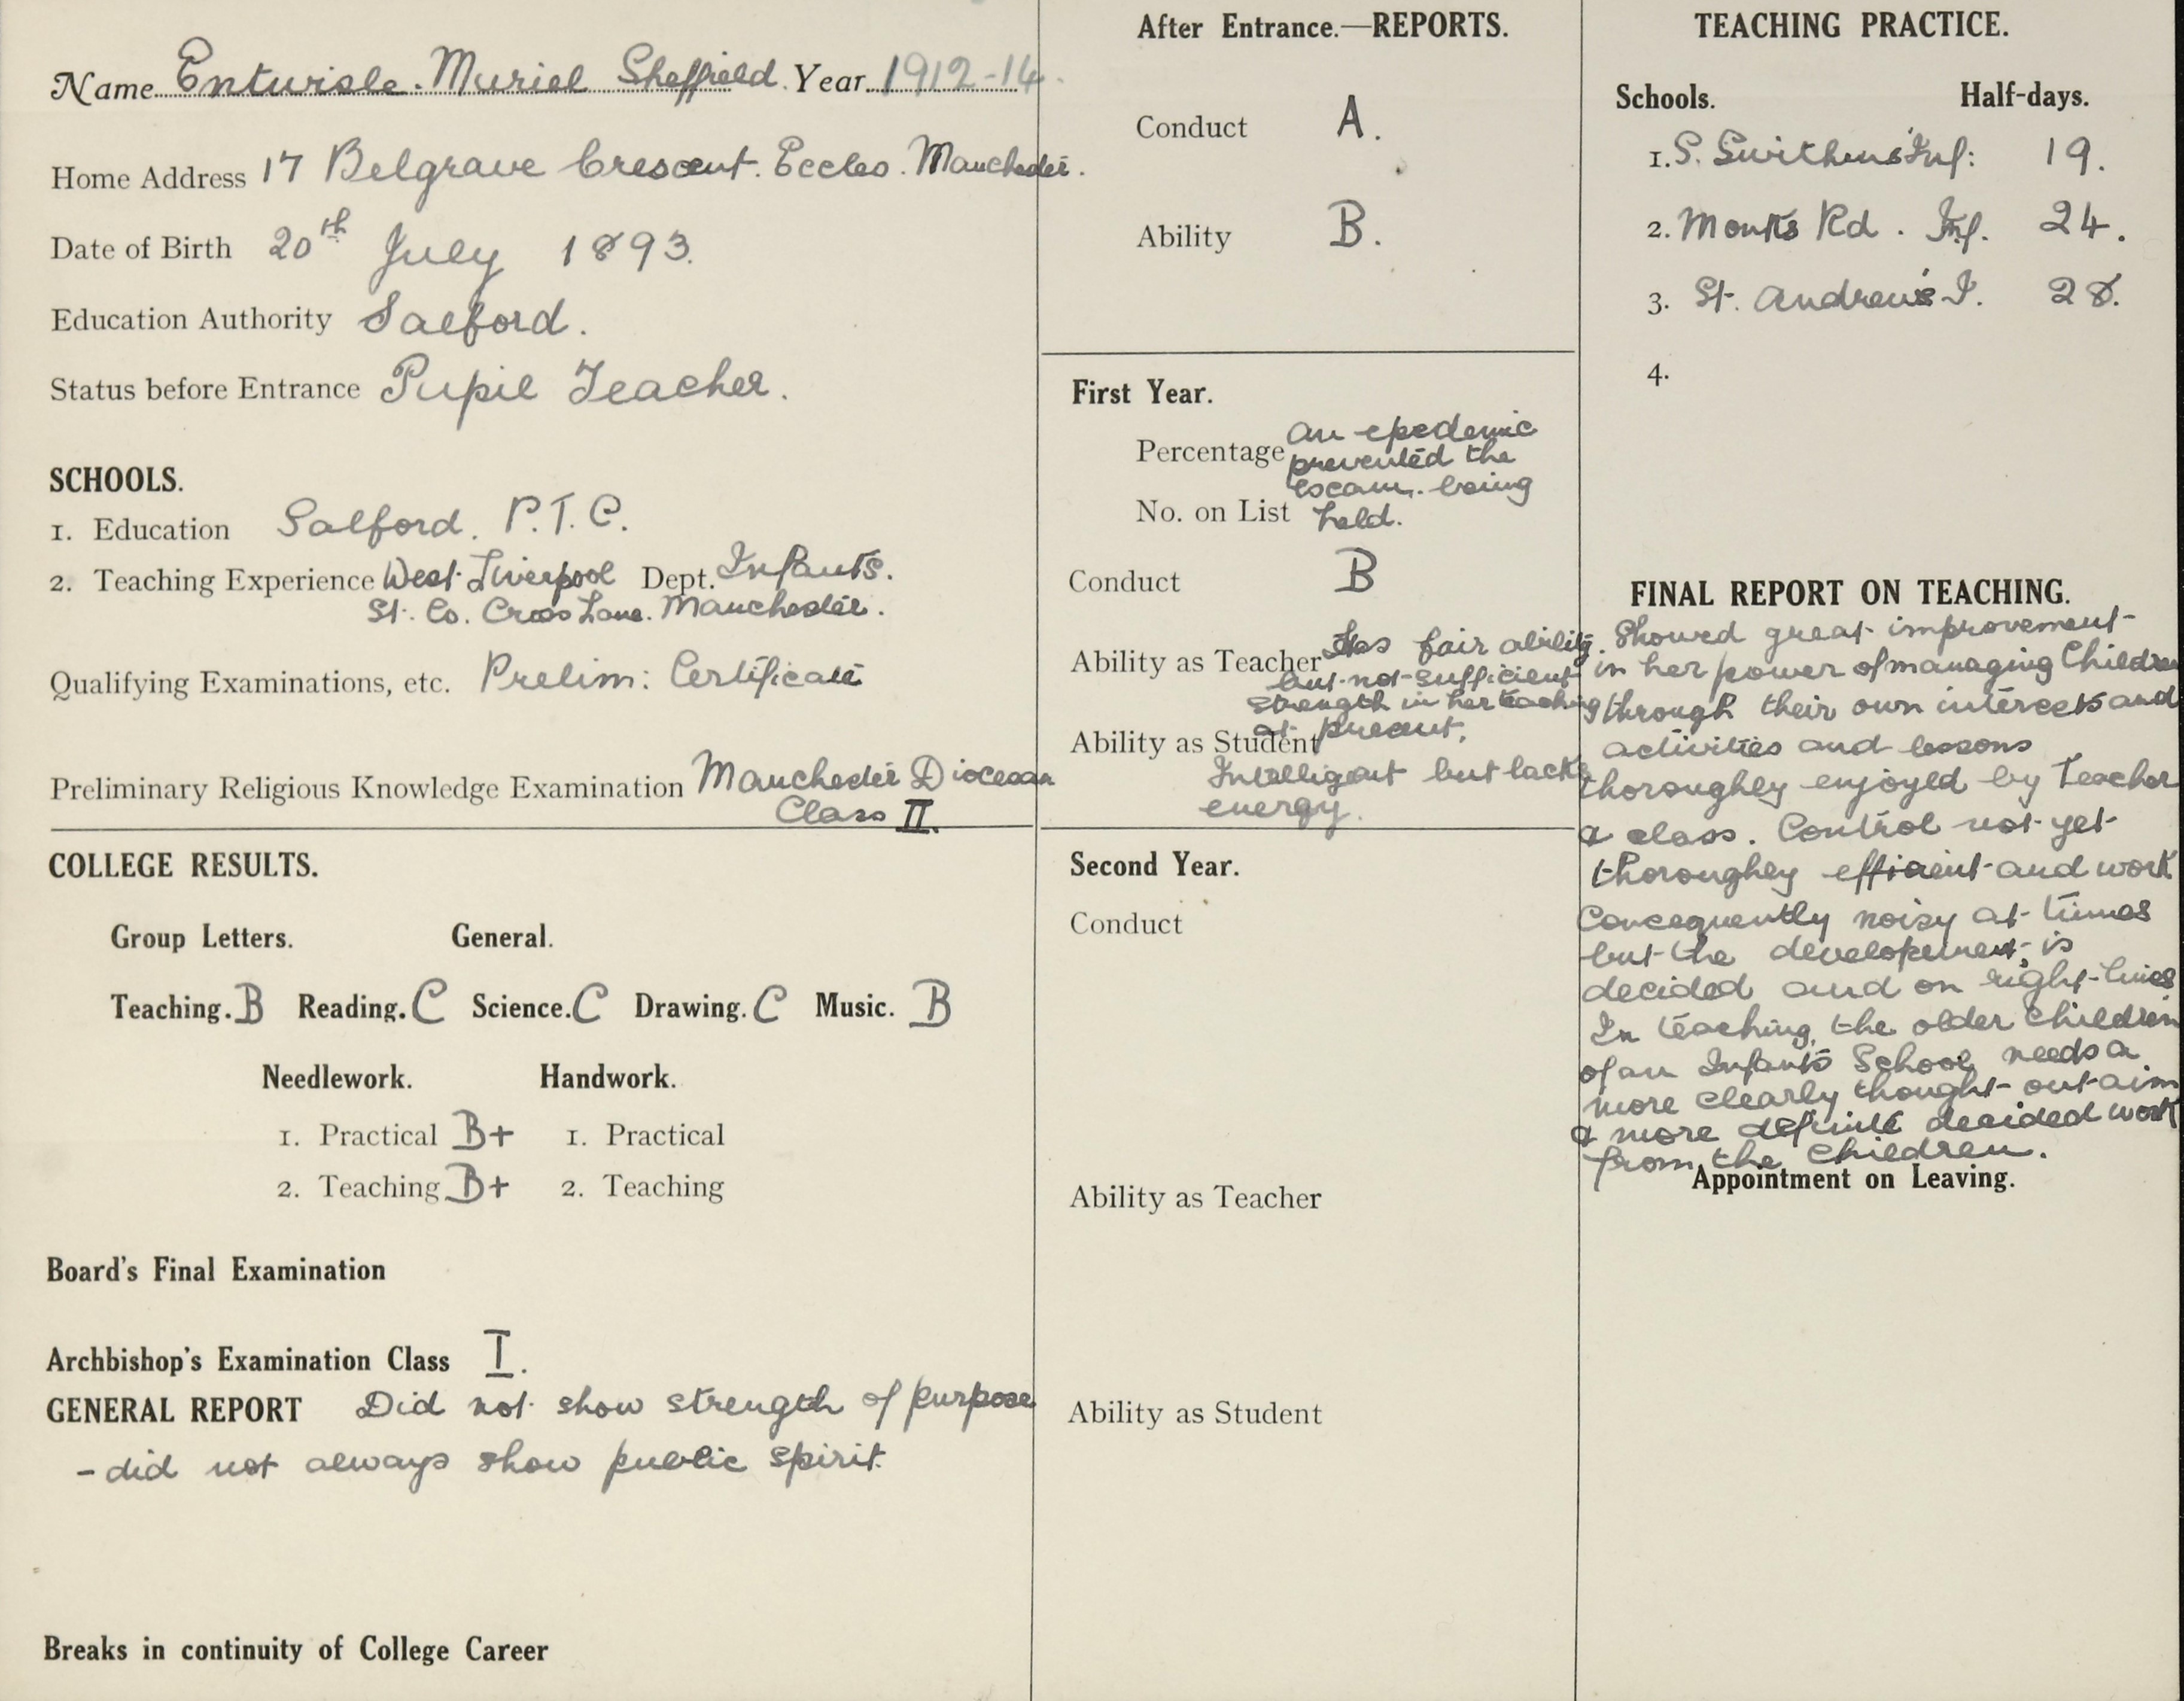 Name Entwisle. Muriel Sheffield. Year 1912-14.
Home Address 17 Belgrave Crescent. Eccles. Manchester.
Date of Birth 20th July 1893.
Education Authority Salford.
Status before Entrance Pupil Teacher.
SCHOOLS.
1. Education Salford. P.T.C.
2. Teaching Experience West Liverpool Dept. Infants.
St. Co. Cross Lane. Manchester.
Qualifying Examinations, etc. Prelim: Certificate
Preliminary Religious Knowledge Examination Manchester Diocesan
Class II.
COLLEGE RESULTS.
Group Letters. General.
Teaching. B Reading. C Science. C Drawing. C Music. B
Needlework. Handwork.
1. Practical B+ 1. Practical
2. Teaching B+ 2. Teaching
Board's Final Examination
Archbishop's Examination Class I.
GENERAL REPORT Did not show strength of purpose
- did not always show public spirit.
Breaks in continuity of College Career
After Entrance.—REPORTS.
Conduct A.
Ability B.
First Year.
Percentage An epedemic
prevented the
exam. being
No. on List held.
Conduct B
Ability as Teacher Has fair ability.
but not sufficient
strength in her teaching
at present.
Ability as Student
Intelligent but lacks
energy.
Second Year.
Conduct
Ability as Teacher
Ability as Student
TEACHING PRACTICE.
Schools. Half-days.
1. S. Swithin's Inf: 19.
2. Monks Rd. Inf. 24.
3. St. Andrew's I. 28.
4.
FINAL REPORT ON TEACHING.
Showed great improvement
in her power of managing Children
through their own interests and
activities and lessons
thoroughly enjoyed by Teacher
& class. Control not yet
thoroughly efficient and work
consequently noisy at times
but the developement is
decided and on right lines
In teaching the older children
of an Infants School needs a
more clearly thought out aim
& more definite decided work
from the children.
Appointment on Leaving.